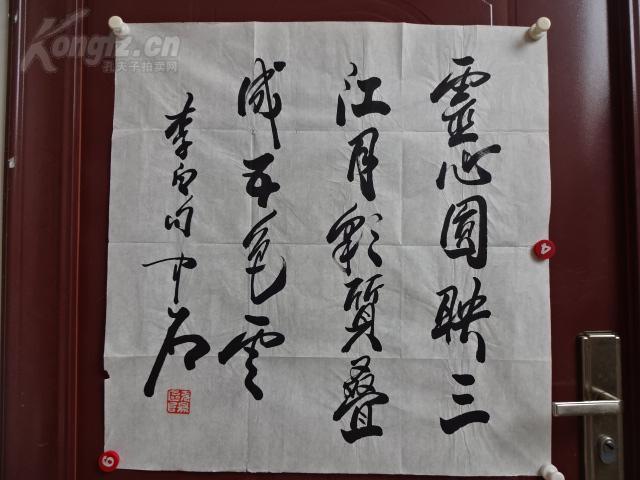 靈心圆映三
江月彩質叠
成五色雲
李白句中石
Kongfz.cn
孔夫子拍卖网